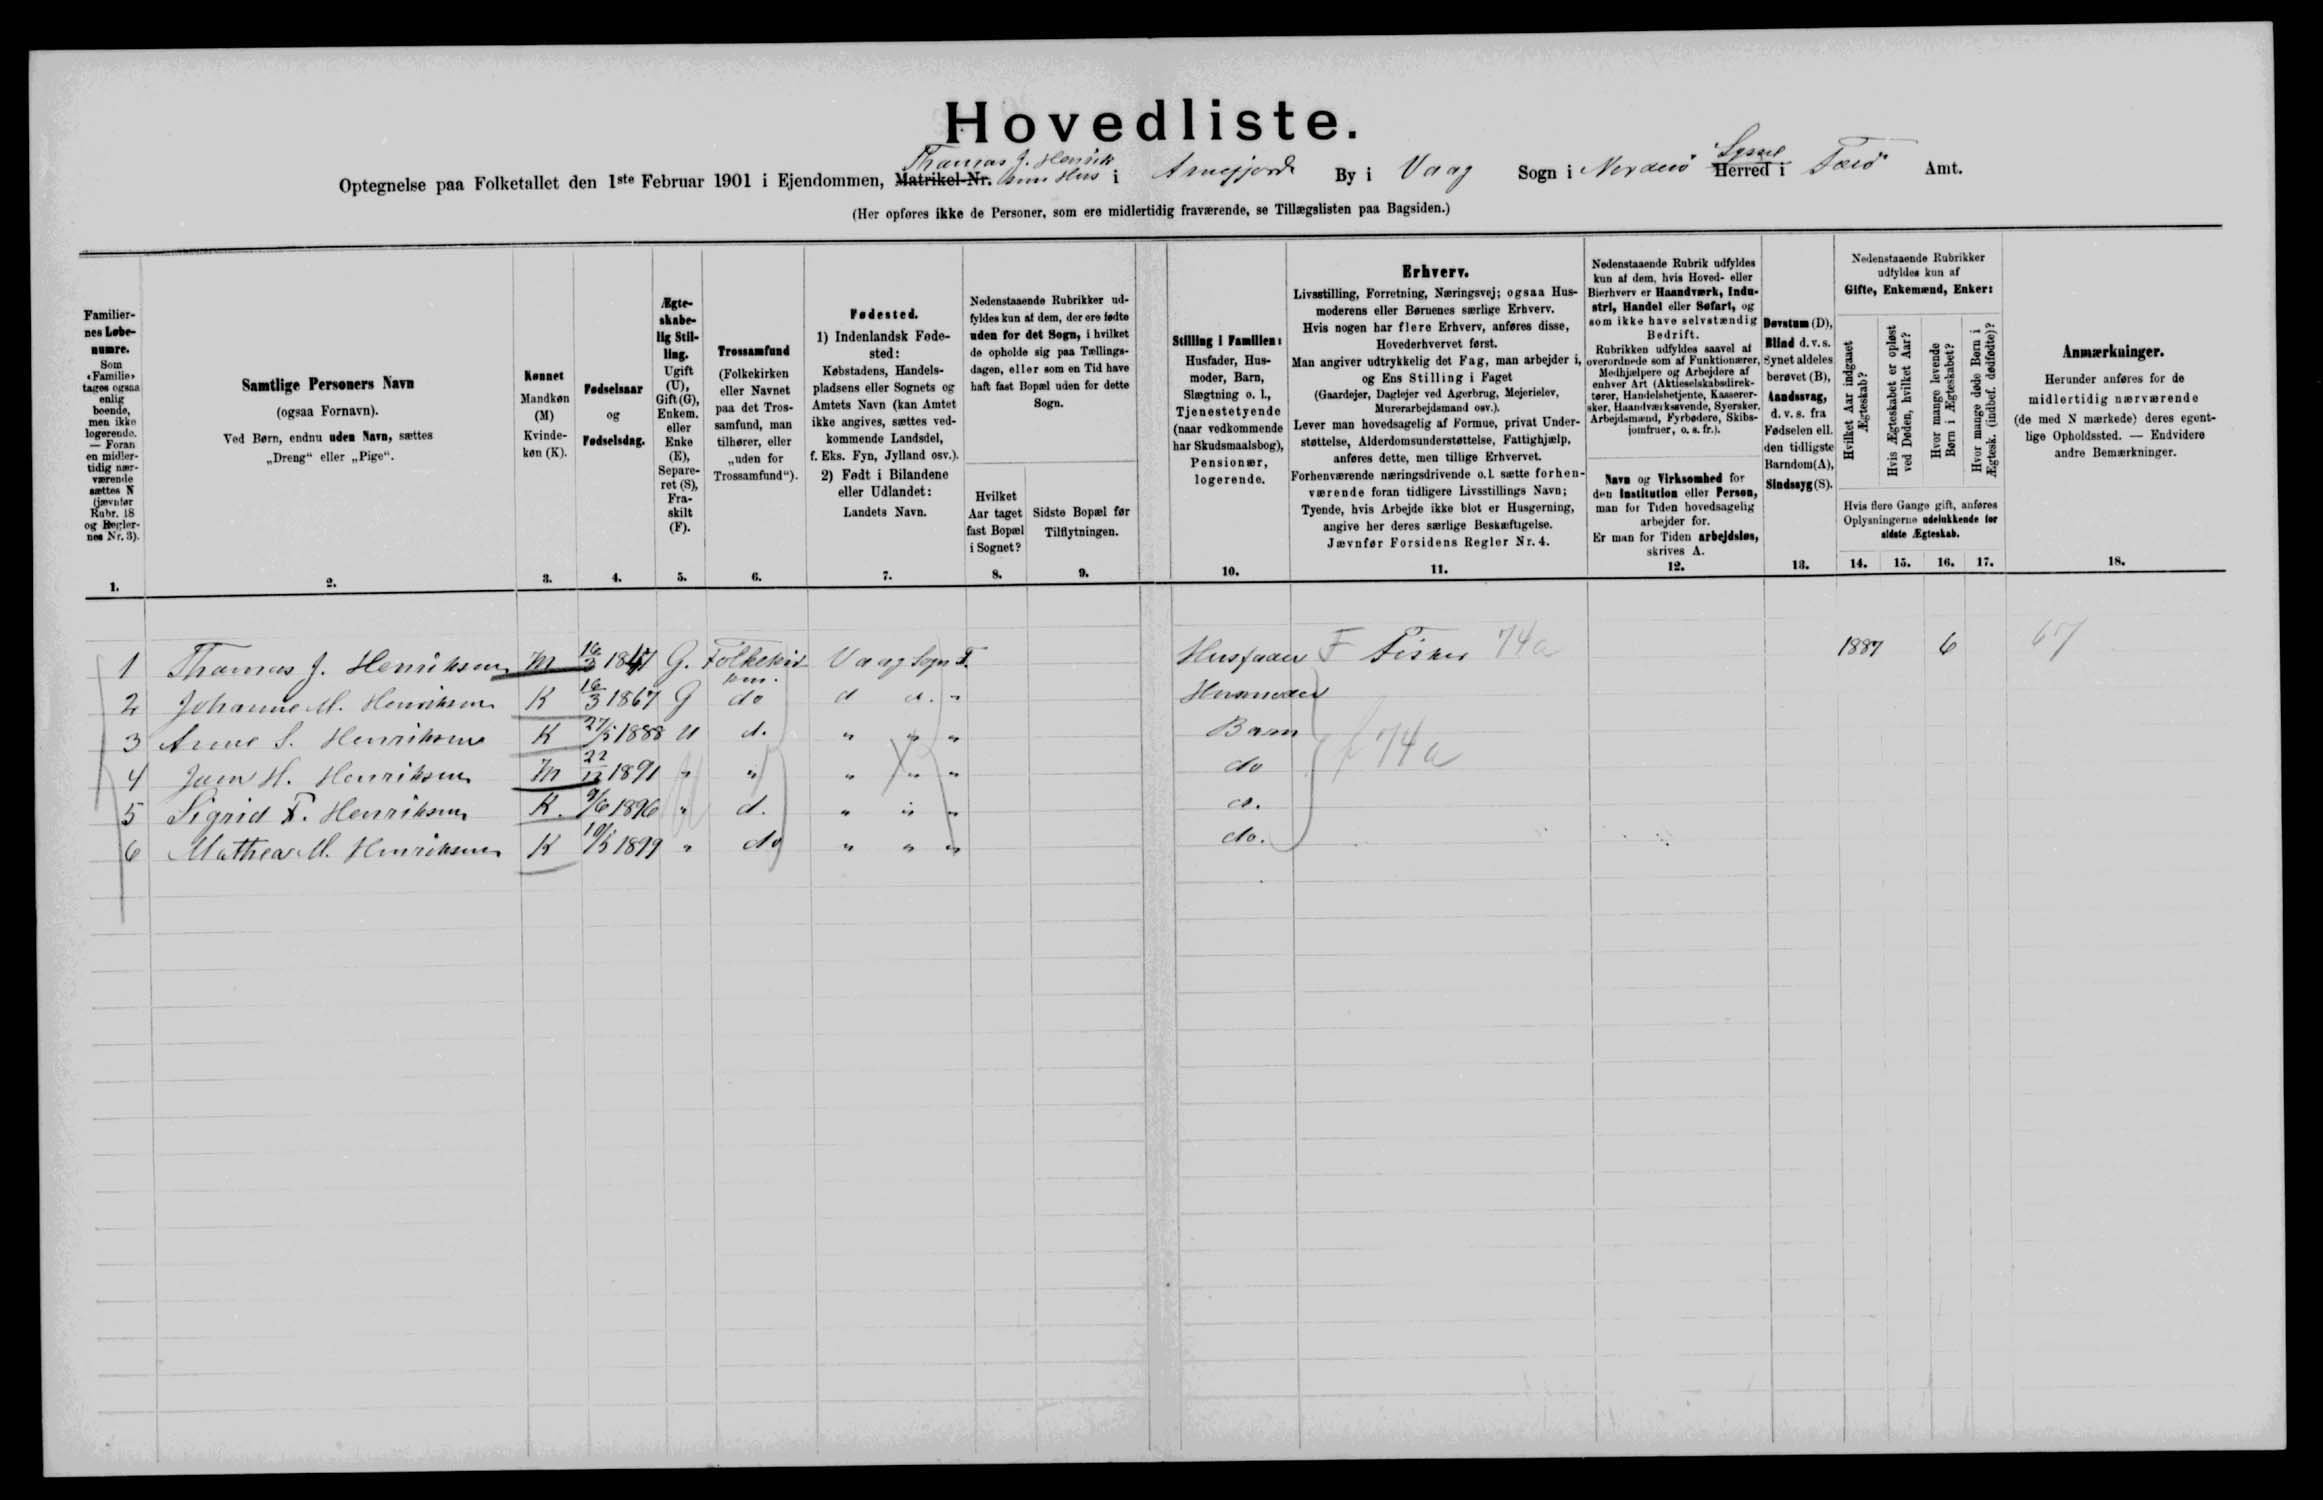 Hovedliste.
Thomas J. Henrik
sens Hus
Syssel
Optegnelse paa Folketallet den 1ste Februar 1901 i Ejendommen, Matrikel-Nr. i Arnefjorde By i Vaag Sogn i Norderö Herred i Færö Amt.
(Her opføres ikke de Personer, som ere midlertidig fraværende, se Tillægslisten paa Bagsiden.)
Familier-
nes Løbe-
numre.
Som
«Familie»
tages ogsaa
enlig
boende,
men ikke
logerende.
— Foran
en midler-
tidig nær-
værende
sættes N
(jævnfør
Rubr. 18
og Regler-
nes Nr. 3).
1.
Samtlige Personers Navn
(ogsaa Fornavn).
Ved Børn, endnu uden Navn, sættes
„Dreng“ eller „Pige“.
2.
Kønnet
Mandkøn
(M)
Kvinde-
køn (K).
3.
Fødselsaar
og
Fødselsdag.
4.
Ægte-
skabe-
lig Stil-
ling.
Ugift
(U),
Gift (G),
Enkem.
eller
Enke
(E),
Separe-
ret (S),
Fra-
skilt
(F).
5.
Trossamfund
(Folkekirken
eller Navnet
paa det Tros-
samfund, man
tilhører, eller
„uden for
Trossamfund“).
6.
Fødested.
1) Indenlandsk Føde-
sted:
Købstadens, Handels-
pladsens eller Sognets og
Amtets Navn (kan Amtet
ikke angives, sættes ved-
kommende Landsdel,
f. Eks. Fyn, Jylland osv.).
2) Født i Bilandene
eller Udlandet:
Landets Navn.
7.
Nedenstaaende Rubrikker ud-
fyldes kun af dem, der ere fødte
uden for det Sogn, i hvilket
de opholde sig paa Tællings-
dagen, eller som en Tid have
haft fast Bopæl uden for dette
Sogn.
Hvilket
Aar taget
fast Bopæl
i Sognet?
8.
Sidste Bopæl før
Tilflytningen.
9.
Stilling i Familien:
Husfader, Hus-
moder, Barn,
Slægtning o. l.,
Tjenestetyende
(naar vedkommende
har Skudsmaalsbog),
Pensionær,
logerende.
10.
Erhverv.
Livsstilling, Forretning, Næringsvej; ogsaa Hus-
moderens eller Børnenes særlige Erhverv.
Hvis nogen har flere Erhverv, anføres disse,
Hovederhvervet først.
Man angiver udtrykkelig det Fag, man arbejder i,
og Ens Stilling i Faget
(Gaardejer, Daglejer ved Agerbrug, Mejerielev,
Murerarbejdsmand osv.).
Lever man hovedsagelig af Formue, privat Under-
støttelse, Alderdomsunderstøttelse, Fattighjælp,
anføres dette, men tillige Erhvervet.
Forhenværende næringsdrivende o.l. sætte forhen-
værende foran tidligere Livsstillings Navn;
Tyende, hvis Arbejde ikke blot er Husgerning,
angive her deres særlige Beskæftigelse.
Jævnfør Forsidens Regler Nr. 4.
11.
Nedenstaaende Rubrik udfyldes
kun af dem, hvis Hoved- eller
Bierhverv er Haandværk, Indu-
stri, Handel eller Søfart, og
som ikke have selvstændig
Bedrift.
Rubrikken udfyldes saavel af
overordnede som af Funktionærer,
Medhjælpere og Arbejdere af
enhver Art (Aktieselskabsdirek-
tører, Handelsbetjente, Kasserer-
sker, Haandværkssvende, Syersker,
Arbejdsmænd, Fyrbødere, Skibs-
jomfruer, o. s. fr.).
Navn og Virksomhed for
den Institution eller Person,
man for Tiden hovedsagelig
arbejder for.
Er man for Tiden arbejdsløs,
skrives A.
12.
Døvstum (D),
Blind d. v. s.
Synet aldeles
berøvet (B),
Aandssvag,
d. v. s. fra
Fødselen ell.
den tidligste
Barndom (A),
Sindssyg (S).
13.
Nedenstaaende Rubrikker
udfyldes kun af
Gifte, Enkemænd, Enker:
Hvilket Aar indgaaet
Ægteskab?
Hvis Ægteskabet er opløst
ved Døden, hvilket Aar?
Hvor mange levende
Børn i Ægteskabet?
Hvor mange døde Børn i
Ægtesk. (indbef. dødfødte)?
Hvis flere Gange gift, anføres
Oplysningerne udelukkende for
sidste Ægteskab.
14. 15. 16. 17.
Anmærkninger.
Herunder anføres for de
midlertidig nærværende
(de med N mærkede) deres egent-
lige Opholdssted. — Endvidere
andre Bemærkninger.
18.
1 Thomas J. Henriksen M 16/3 G. Folkekir Vaag Sogn F. Husfader F Fisker 74a 1887 6 67
ken.
2 Johanne M. Henriksen K 16/3 1867 G do d d. " Husmoder
3 Anne S. Henriksen K 27/5 1888 U d. " " " Barn
4 M 22/12 1891 " " " " " do 74a
5 Sigrid Henriksen K. 9/6 1896 " d. " " " d.
6 Mathea M. Henriksen K 10/5 1899 " do " " " do.